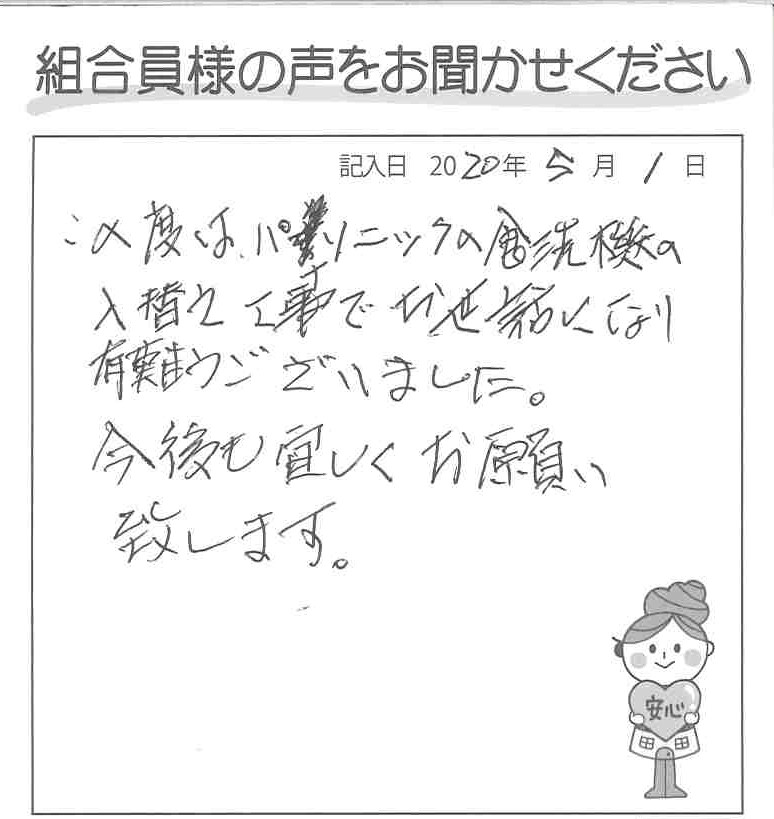 組合員様の声をお聞かせください
記入日 2020年 5月 1日
この度は、パナソニックの食洗機の
入替え工事でお世話になり
有難うございました。
今後も宜しくお願い
致します。
安心